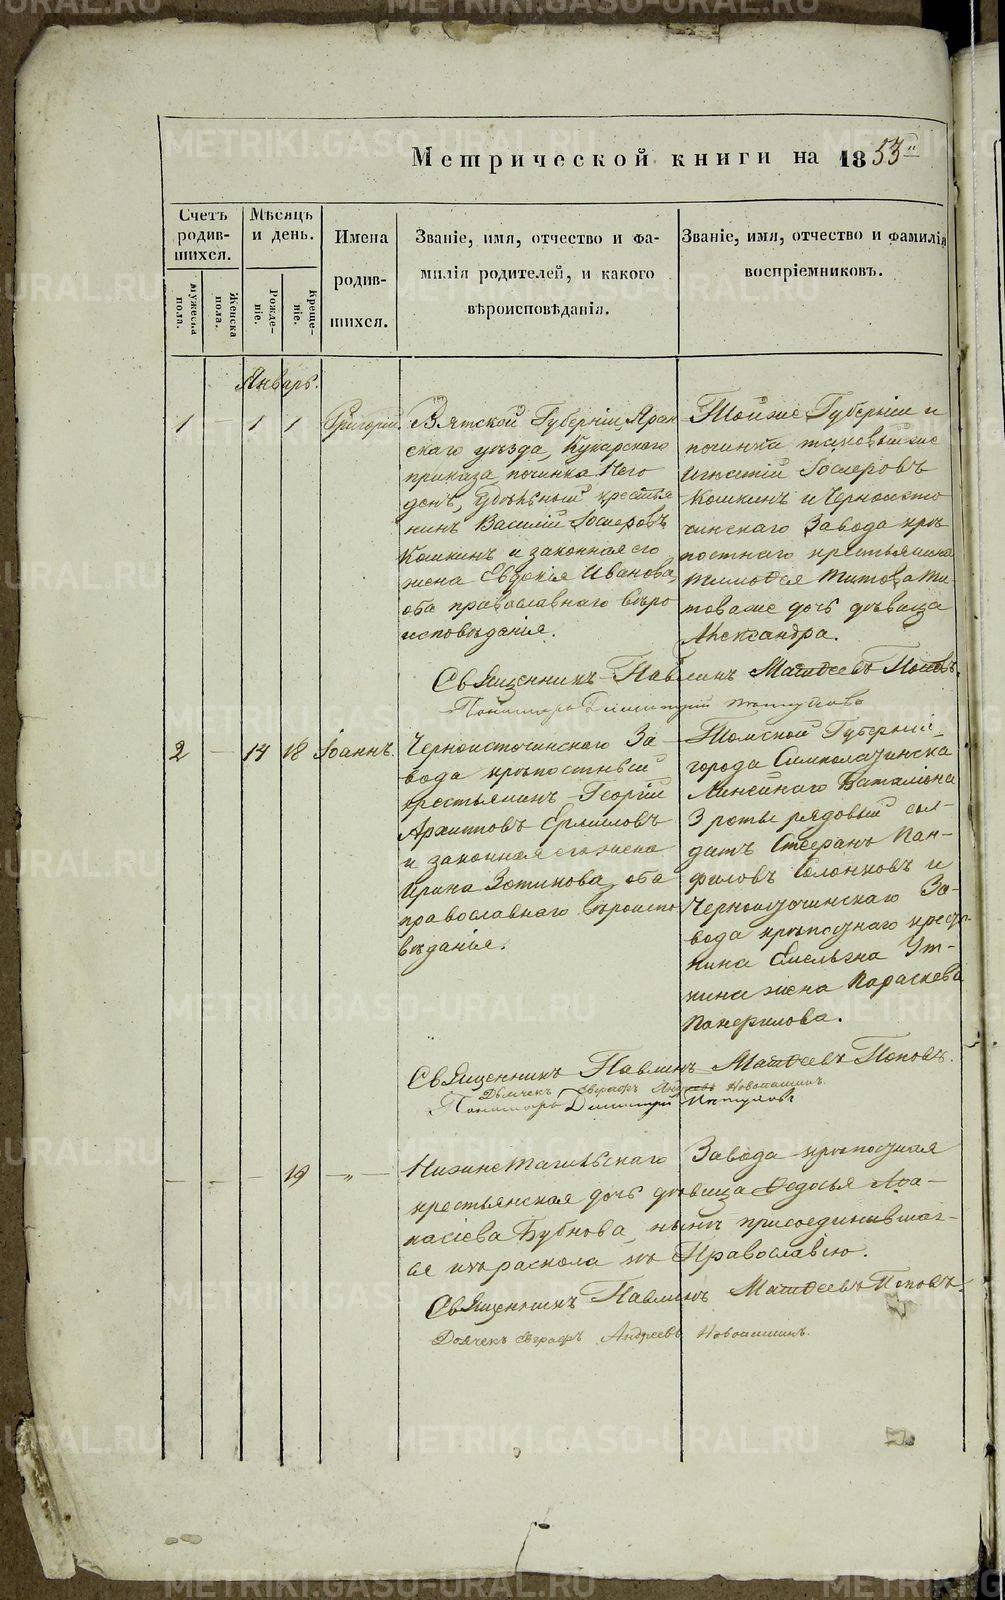 Метрической книги на 1853й
Счетъ родив-шихся.
Мѣсяцъ и день.
Имена родив-шихся.
Званіе, имя, отчество и фа-
милія родителей, и какого
вѣроисповѣданія.
Званіе, имя, отчество и фамилія
воспріемниковъ.
Мужеска пола.
Женска пола.
Рожде-ніе.
Креще-ніе.
Январь.
1 — 1 1 Григорій.
Вятской Губерніи Яран
скаго уѣзда, Кукарскаго
приказа починка Него
день, Удѣльный крестья
нинъ Василій
Кошкинъ и законная его
жена Евдокія Иванова,
оба православнаго вѣро
исповѣданія.
Тойже Губерніи и
починка таковыйже
Игнатій
Кошкинъ и Черноисто
чинскаго Завода крѣ
постнаго крестьянина
Тимоѳея Титова Ти-
това же дочь дѣвица
Александра.
Священникъ Павлинъ Матѳеевъ Поповъ.
Пономарь Димитрій
2 — 14 18 Іоаннъ.
Черноисточинскаго За
вода крѣпостный
крестьянинъ Георгій
Архиповъ Ермиловъ
и законная его жена
Ирина Зотикова, оба
православнаго вѣроиспо
вѣданія.
Томской Губерніи
города
Линейнаго Баталіона
3 роты рядовый сол-
датъ Стефанъ Пан-
филовъ и
Черноисточинскаго За-
вода крѣпостнаго крестья
нина Емельяна Ут-
кина жена Параскева
Панфилова.
Священникъ Павлинъ Матѳеевъ Поповъ.
Дьячекъ Евграфъ Андреевъ Новопашинъ.
Пономарь Димитрій
— — — 19 — „ —
Нижнетагильскаго Завода крѣпостная
крестьянская дочь дѣвица Ѳедосья Аѳа-
насіева Бубнова, нынѣ присоединившая-
ся изъ раскола къ Православію.
Священникъ Павлинъ Матѳеевъ Поповъ.
Дьячекъ Евграфъ Андреевъ Новопашинъ.
METRIKI.GASO-URAL.RU